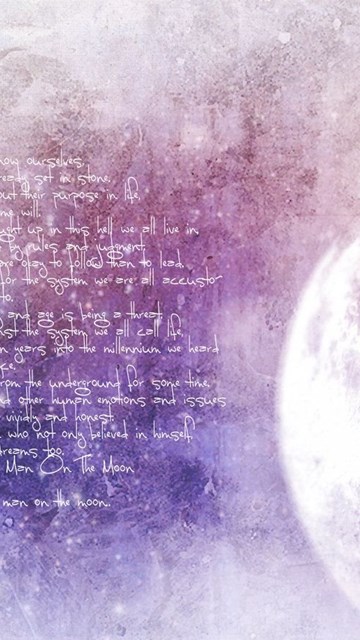 ourselves,
ready set in stone.
out their purpose in life,
me will.
ught up in this hell we all live in.
by rules and judgment,
are okay to follow than to lead.
for the system we are all accustor
to.
and age is being a threat
nst the system we all call life
n years into the millennium we heard
rom the underground for some time.
ed other human emotions and issues
vividly and honest.
who not only believed in himself,
dreams too.
Man On The Moon
man on the moon.